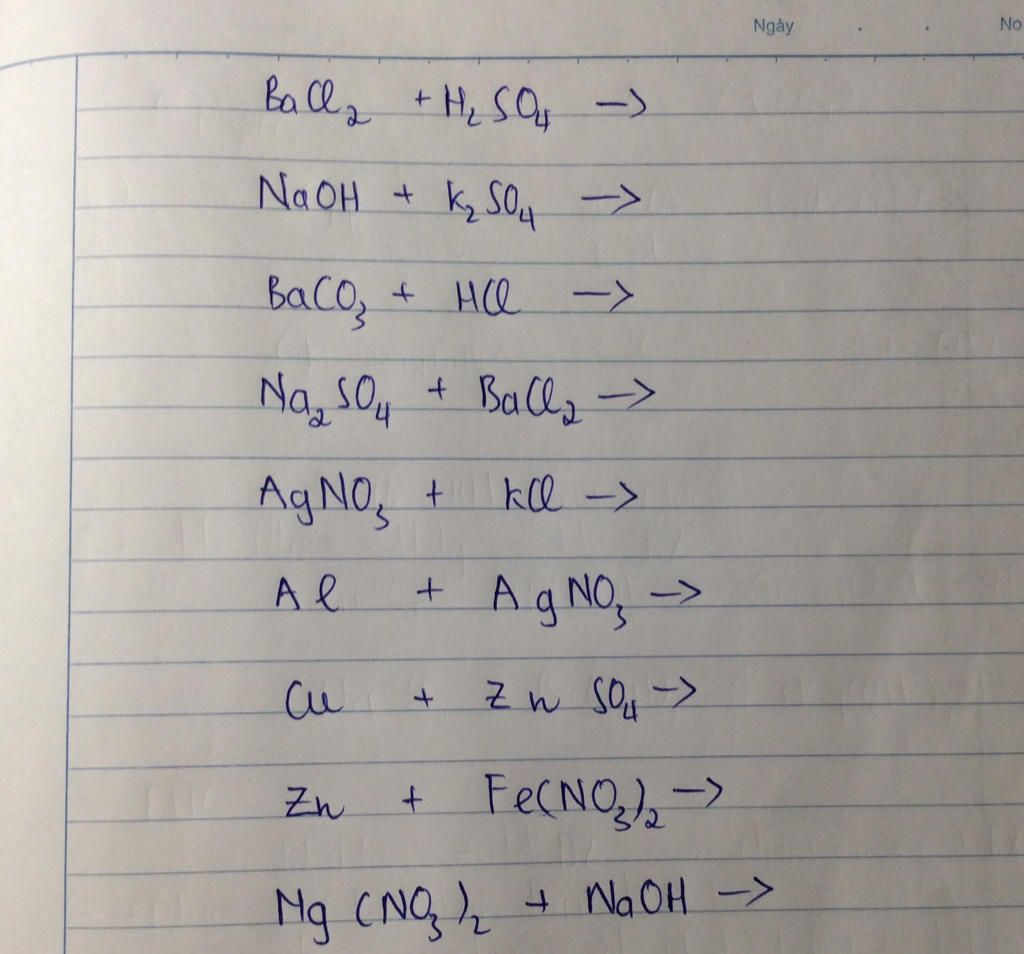 Ngày . . No
BaCl₂ + H₂SO₄ →
NaOH + K₂SO₄ →
BaCO₃ + HCl →
Na₂SO₄ + BaCl₂ →
AgNO₃ + KCl →
Al + AgNO₃ →
Cu + ZnSO₄ →
Zn + Fe(NO₃)₂ →
Mg(NO₃)₂ + NaOH →